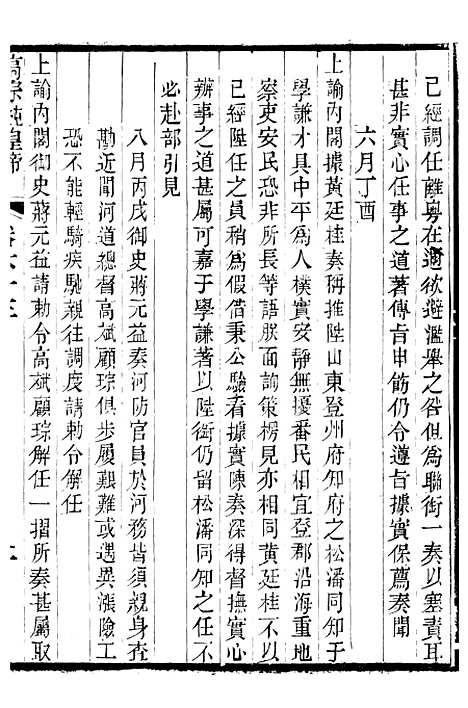 已經調任離粵在邇欲避濫舉之咎但爲聯銜一奏以塞責耳
甚非實心任事之道著傳旨申飭仍令遵旨據實保薦奏聞
六月丁酉
上諭內閣據黃廷桂奏稱推陞山東登州府知府之松潘同知于
學謙才具中平爲人樸實安靜無擾番民相宜登郡沿海重地
察吏安民恐非所長等語朕面諭策楞見亦相同黃廷桂不以
已經陞任之員稍爲假借秉公驗看據實陳奏深得督撫實心
辦事之道甚屬可嘉于學謙著以陞銜仍留松潘同知之任不
必赴部引見
八月丙戌御史蔣元益奏河防官員於河務皆須親身查
勘近聞河道總督高斌顧琮俱步履艱難或遇異漲險工
恐不能輕騎疾馳親往調度請勅令解任
上諭內閣御史蔣元益請勅令高斌顧琮解任一摺所奏甚屬取
高宗純皇帝
卷六十三